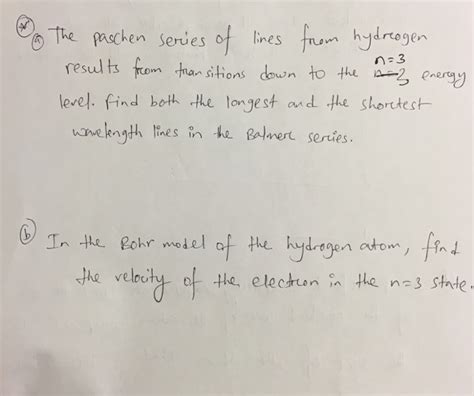 * a The paschen series of lines from hydrogen
n=3
results from transitions down to the n=2 energy
level. find both the longest and the shortest
wavelength lines in the Balmer series.
b In the Bohr model of the hydrogen atom, find
the velocity of the electron in the n=3 state.